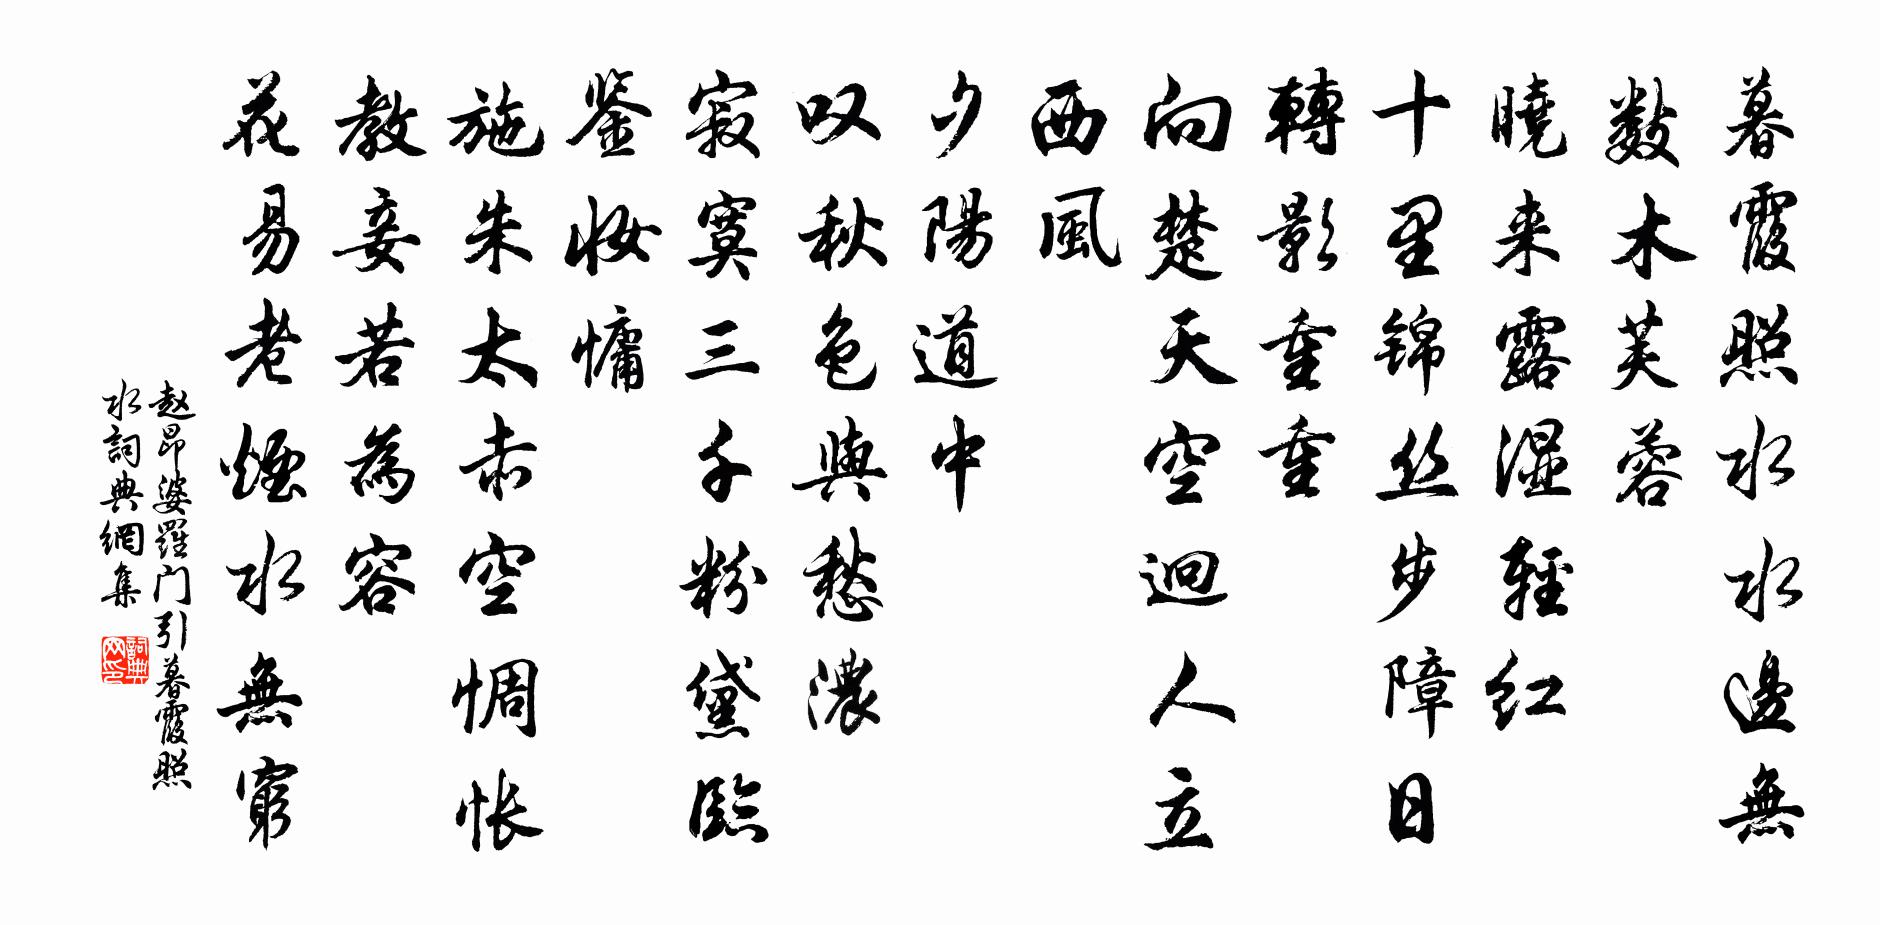 暮霞照水水邊無
數木芙蓉
曉来露湿輕红
十里锦丝步障日
轉影重重
向楚天空迥人立
西風
夕陽道中
叹秋色與愁濃
寂寞三千粉黛臨
鉴妆慵
施朱太赤空惆怅
教妾若為容
花易老煙水無窮
赵昂婆羅门引暮霞照
水詞典網集
詞典网印